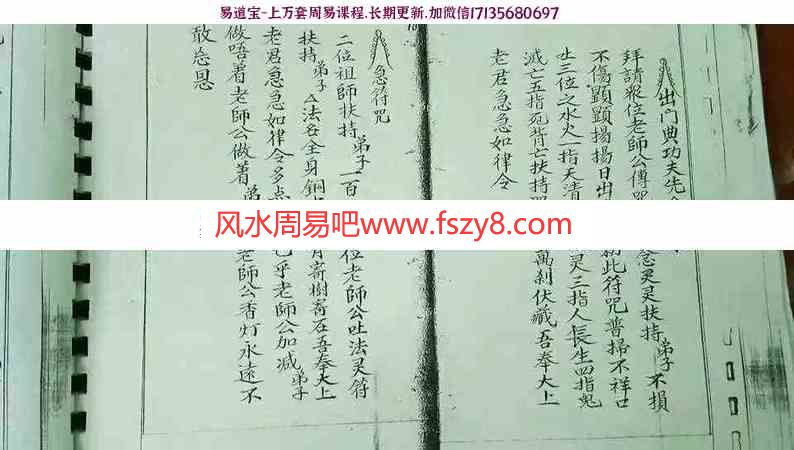 易道宝-上万套周易课程.长期更新.加微信17135680697
出门典功夫先
拜請眾位老師公傳 念灵灵扶持弟子不損
不傷顕顕揚揚日出 此符咒普掃不祥口
吐三位之水火一指天清 灵三指人長生四指鬼
滅亡五指死背亡扶持 萬刹伏藏吾奉大上
老君急急如律令
急符咒
二位祖師扶持弟子一百 位老師公吐法灵符
扶持弟子厶法各全身銅 寄樹寄石吾奉大上
老君急急如律令多点 乎老師公加减弟子
做唔着老師公做着 老師公香灯永遠不
敢忘恩
风水周易吧www.fszy8.com